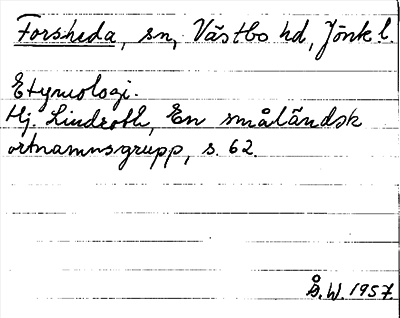 Forsheda, sn, Västbo hd, Jönk l.
Etymologi.
Hj. Lindroth, En småländsk
ortnamnsgrupp, s. 62.
Å.W. 1957.